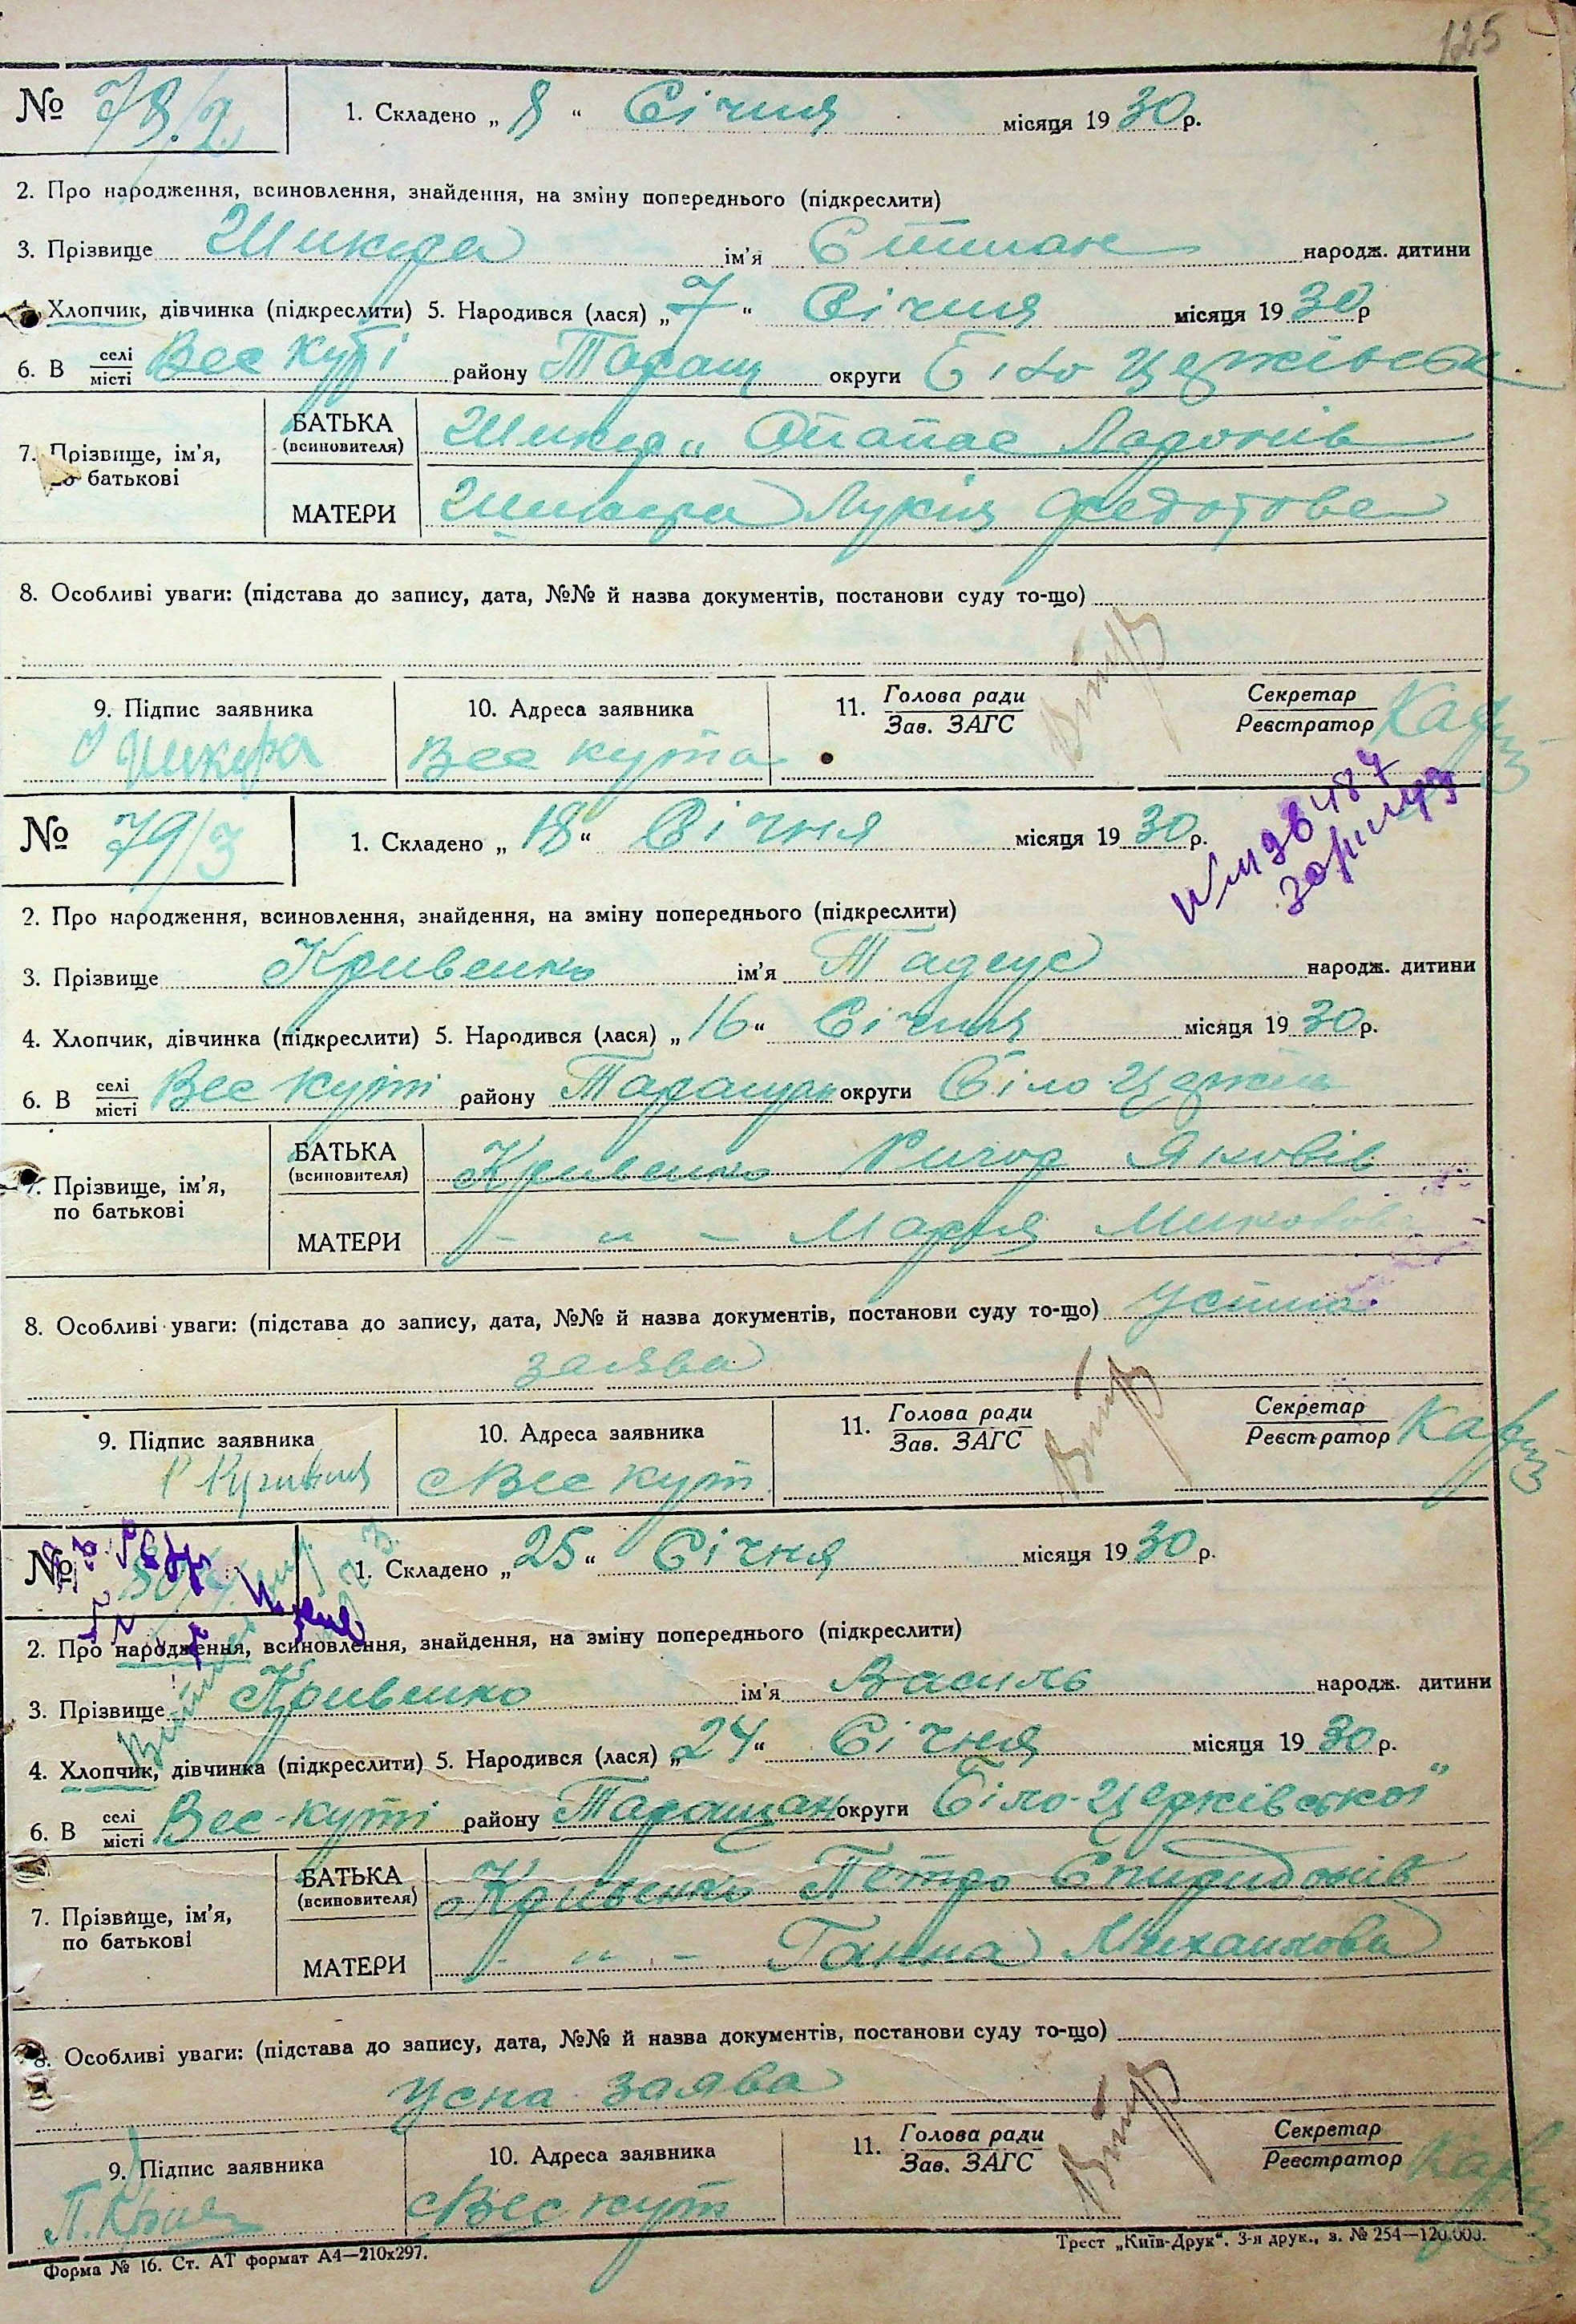 125
№ 78/2 1. Складено „ 8 “ Січня місяця 1930 р.
2. Про народження, всиновлення, знайдення, на зміну попереднього (підкреслити)
3. Прізвище Шикера ім'я Степан народж. дитини
Хлопчик, дівчинка (підкреслити) 5. Народився (лася) „ 7 “ Січня місяця 1930 р
6. В селі місті Вес Куті району Таращ округи Біло Церківськ
7. Прізвище, ім'я, по батькові БАТЬКА (всиновителя) Шикера Опанас
МАТЕРИ Шикера Лукія Федотова
8. Особливі уваги: (підстава до запису, дата, №№ й назва документів, постанови суду то-що)
9. Підпис заявника 10. Адреса заявника 11. Голова ради Зав. ЗАГС Секретар Реєстратор
О Шикера Вес кута
№ 79/3 1. Складено „ 18 “ Січня місяця 1930 р.
2. Про народження, всиновлення, знайдення, на зміну попереднього (підкреслити)
3. Прізвище Кривенко ім'я Тадеус народж. дитини
4. Хлопчик, дівчинка (підкреслити) 5. Народився (лася) „ 16 “ Січня місяця 1930 р.
6. В селі місті Вес Куті району Таращан округи Біло-Церків
7. Прізвище, ім'я, по батькові БАТЬКА (всиновителя) Кривенко Ригор Яковів
МАТЕРИ - „ - Марія
8. Особливі уваги: (підстава до запису, дата, №№ й назва документів, постанови суду то-що) устна
заява
9. Підпис заявника 10. Адреса заявника 11. Голова ради Зав. ЗАГС Секретар Реєстратор
Вес кут
№ 1. Складено „ 25 “ Січня місяця 1930 р.
2. Про народження, всиновлення, знайдення, на зміну попереднього (підкреслити)
3. Прізвище Кривенко ім'я Василь народж. дитини
4. Хлопчик, дівчинка (підкреслити) 5. Народився (лася) „ 24 “ Січня місяця 1930 р.
6. В селі місті Вес-куті району Таращан округи Біло-Церківської
7. Прізвище, ім'я, по батькові БАТЬКА (всиновителя) Кривенко Петро Спиридонів
МАТЕРИ - „ - Ганна Михайлова
8. Особливі уваги: (підстава до запису, дата, №№ й назва документів, постанови суду то-що)
Усна заява
9. Підпис заявника 10. Адреса заявника 11. Голова ради Зав. ЗАГС Секретар Реєстратор
Вес кут
Форма № 16. Ст. АТ формат А4—210х297. Трест „Київ-Друк“. 3-я друк., з. № 254—120.000.